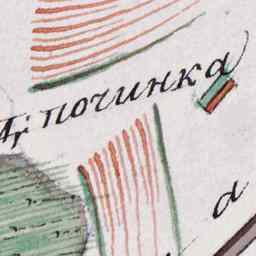 починка
а